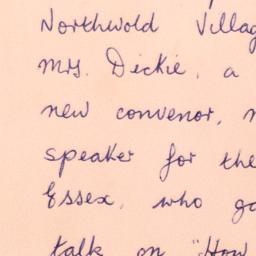 Northwold
Mrs. Dickie, a
new convenor,
speaker for the
Essex, who
talk on "How